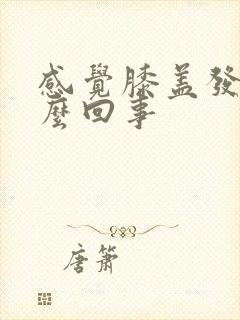 感覺膝蓋發
麼回事
唐簫